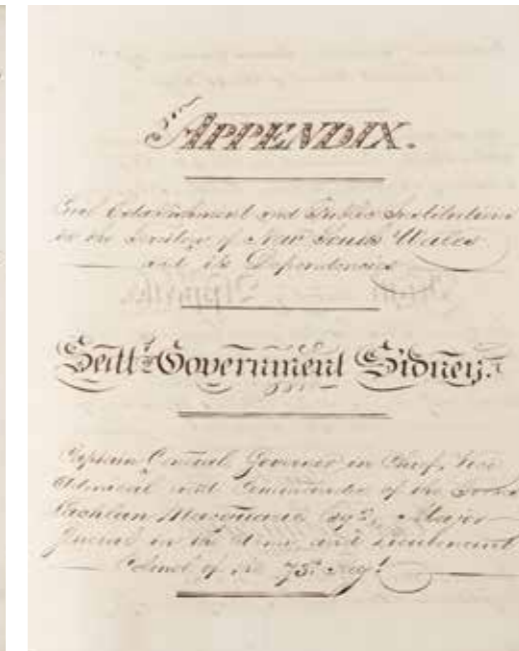 APPENDIX.
Civil Establishment and Public Institutions
in the Territory of New South Wales
and its Dependencies
Seat of Government Sidney.
Captain General, Governor in Chief, Vice
Admiral and Commander of the Forces
Lachlan Macquarie Esqr., Major
General in the Army, and Lieutenant
Colonel of the 73d. Regt.